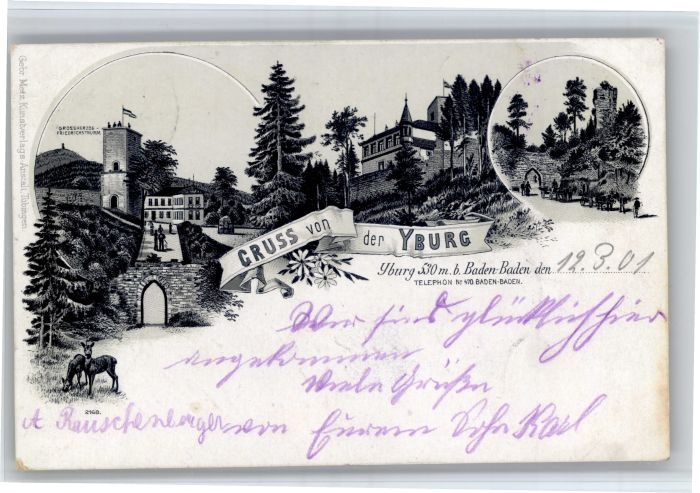 Gebr. Metz, Kunstverlags-Anstalt, Tübingen.
GROSSHERZOG-
FRIEDRICHSTHURM.
GRUSS von der YBURG
Yburg 530 m. b. Baden-Baden den 12.3.01
TELEPHON Nr 470 BADEN-BADEN.
Wir sind glücklich hier
angekommen
Viele Grüße
A Rauschenberger von Eurem Sohn Karl
2160.